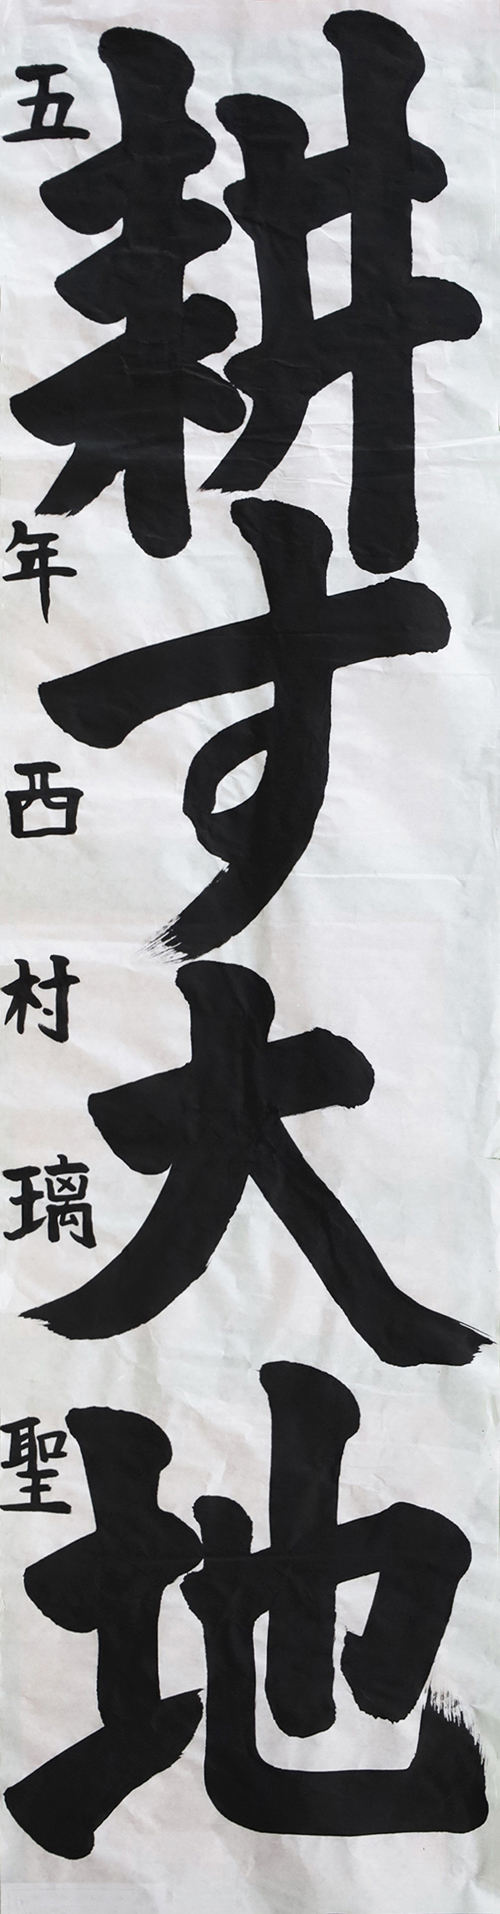 耕す大地
五年西村璃聖